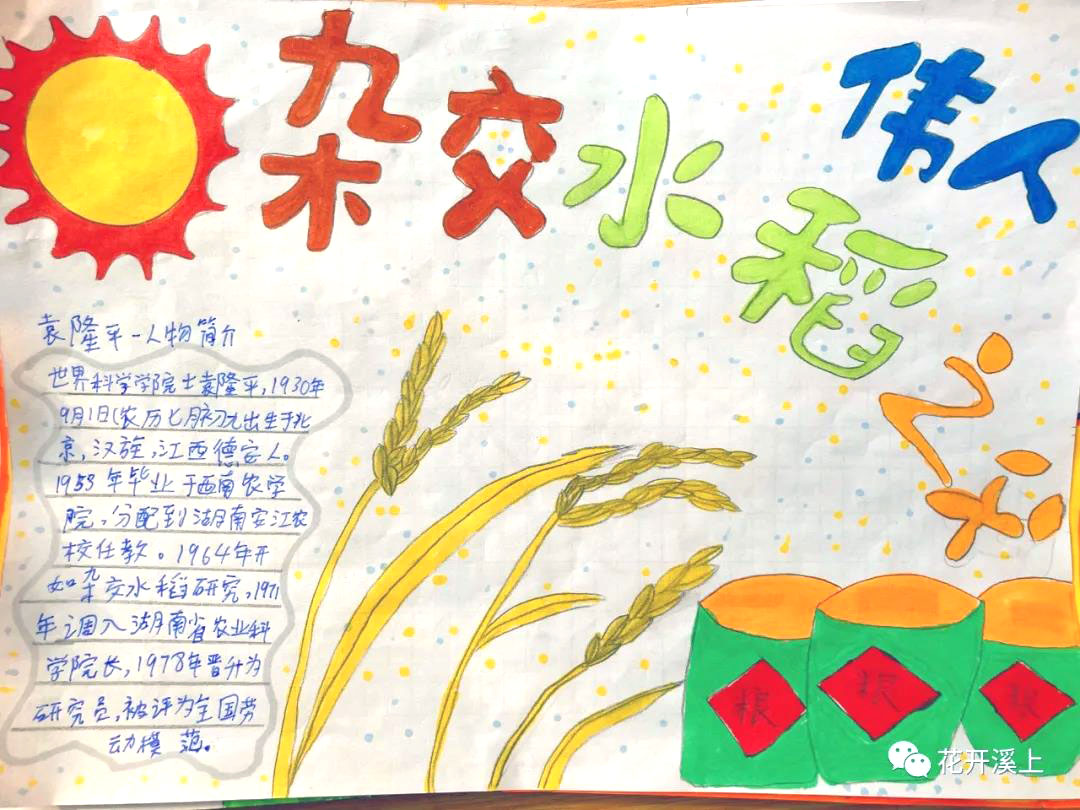 杂交水稻
之父
伟人
袁隆平-人物简介
世界科学学院士袁隆平,1930年
9月1日(农历七月初九出生于北
京,汉族,江西德安人。
1953年毕业于西南农学
院。分配到湖南安江农
校任教。1964年开
如杂交水稻研究,1971
年调入湖南省农业科
学院长,1978年晋升为
研究员,被评为全国劳
动模范。
粮
粮
粮
花开溪上